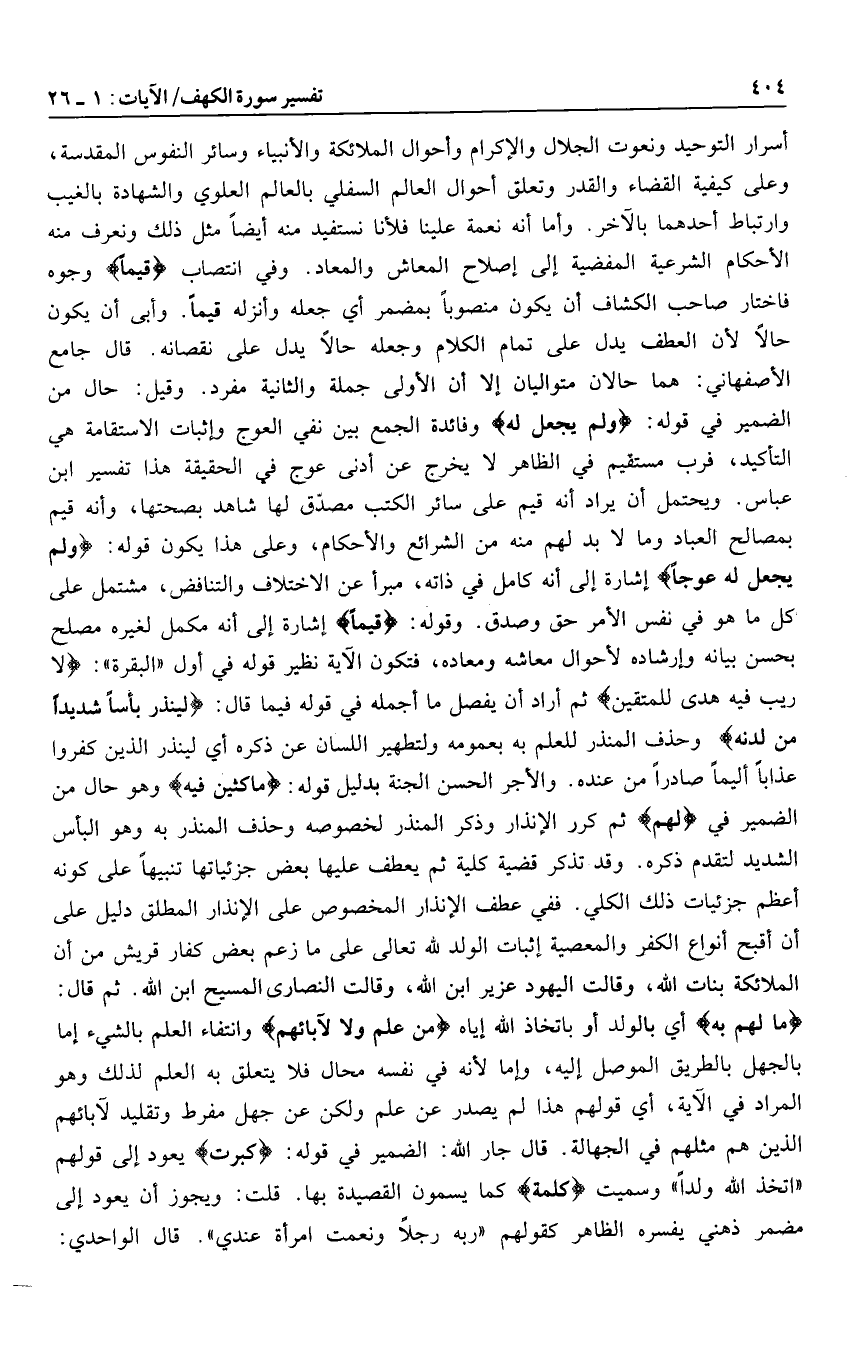 ٤٠٤
تفسير سورة الكهف/ الآيات: ١ - ٢٦
أسرار التوحيد ونعوت الجلال والإكرام وأحوال الملائكة والأنبياء وسائر النفوس المقدسة،
وعلى كيفية القضاء والقدر وتعلق أحوال العالم السفلي بالعالم العلوي والشهادة بالغيب
وارتباط أحدهما بالآخر. وأما أنه نعمة علينا فلأنا نستفيد منه أيضاً مثل ذلك ونعرف منه
الأحكام الشرعية المفضية إلى إصلاح المعاش والمعاد. وفي انتصاب ﴿قيماً﴾ وجوه
فاختار صاحب الكشاف أن يكون منصوباً بمضمر أي جعله وأنزله قيماً. وأبى أن يكون
حالاً لأن العطف يدل على تمام الكلام وجعله حالاً يدل على نقصانه. قال جامع
الأصفهاني: هما حالان متواليان إلا أن الأولى جملة والثانية مفرد. وقيل: حال من
الضمير في قوله: ﴿ولم يجعل له﴾ وفائدة الجمع بين نفي العوج وإثبات الاستقامة هي
التأكيد، فرب مستقيم في الظاهر لا يخرج عن أدنى عوج في الحقيقة هذا تفسير ابن
عباس. ويحتمل أن يراد أنه قيم على سائر الكتب مصدّق لها شاهد بصحتها، وأنه قيم
بمصالح العباد وما لا بد لهم منه من الشرائع والأحكام، وعلى هذا يكون قوله: ﴿ولم
يجعل له عوجاً﴾ إشارة إلى أنه كامل في ذاته، مبرأ عن الاختلاف والتنافض، مشتمل على
كل ما هو في نفس الأمر حق وصدق. وقوله: ﴿قيماً﴾ إشارة إلى أنه مكمل لغيره مصلح
بحسن بيانه وإرشاده لأحوال معاشه ومعاده، فتكون الآية نظير قوله في أول «البقرة»: ﴿لا
ريب فيه هدى للمتقين﴾ ثم أراد أن يفصل ما أجمله في قوله فيما قال: ﴿لينذر بأساً شديداً
من لدنه﴾ وحذف المنذر للعلم به بعمومه ولتطهير اللسان عن ذكره أي لينذر الذين كفروا
عذاباً أليماً صادراً من عنده. والأجر الحسن الجنة بدليل قوله: ﴿ماكثين فيه﴾ وهو حال من
الضمير في ﴿لهم﴾ ثم كرر الإنذار وذكر المنذر لخصوصه وحذف المنذر به وهو البأس
الشديد لتقدم ذكره. وقد تذكر قضية كلية ثم يعطف عليها بعض جزئياتها تنبيهاً على كونه
أعظم جزئيات ذلك الكلي. ففي عطف الإنذار المخصوص على الإنذار المطلق دليل على
أن أقبح أنواع الكفر والمعصية إثبات الولد لله تعالى على ما زعم بعض كفار قريش من أن
الملائكة بنات الله، وقالت اليهود عزير ابن الله، وقالت النصارى المسيح ابن الله. ثم قال:
﴿ما لهم به﴾ أي بالولد أو باتخاذ الله إياه ﴿من علم ولا لآبائهم﴾ وانتفاء العلم بالشيء إما
بالجهل بالطريق الموصل إليه، وإما لأنه في نفسه محال فلا يتعلق به العلم لذلك وهو
المراد في الآية، أي قولهم هذا لم يصدر عن علم ولكن عن جهل مفرط وتقليد لآبائهم
الذين هم مثلهم في الجهالة. قال جار الله: الضمير في قوله: ﴿كبرت﴾ يعود إلى قولهم
«اتخذ الله ولداً» وسميت ﴿كلمة﴾ كما يسمون القصيدة بها. قلت: ويجوز أن يعود إلى
مضمر ذهني يفسره الظاهر كقولهم «ربه رجلاً ونعمت امرأة عندي». قال الواحدي: